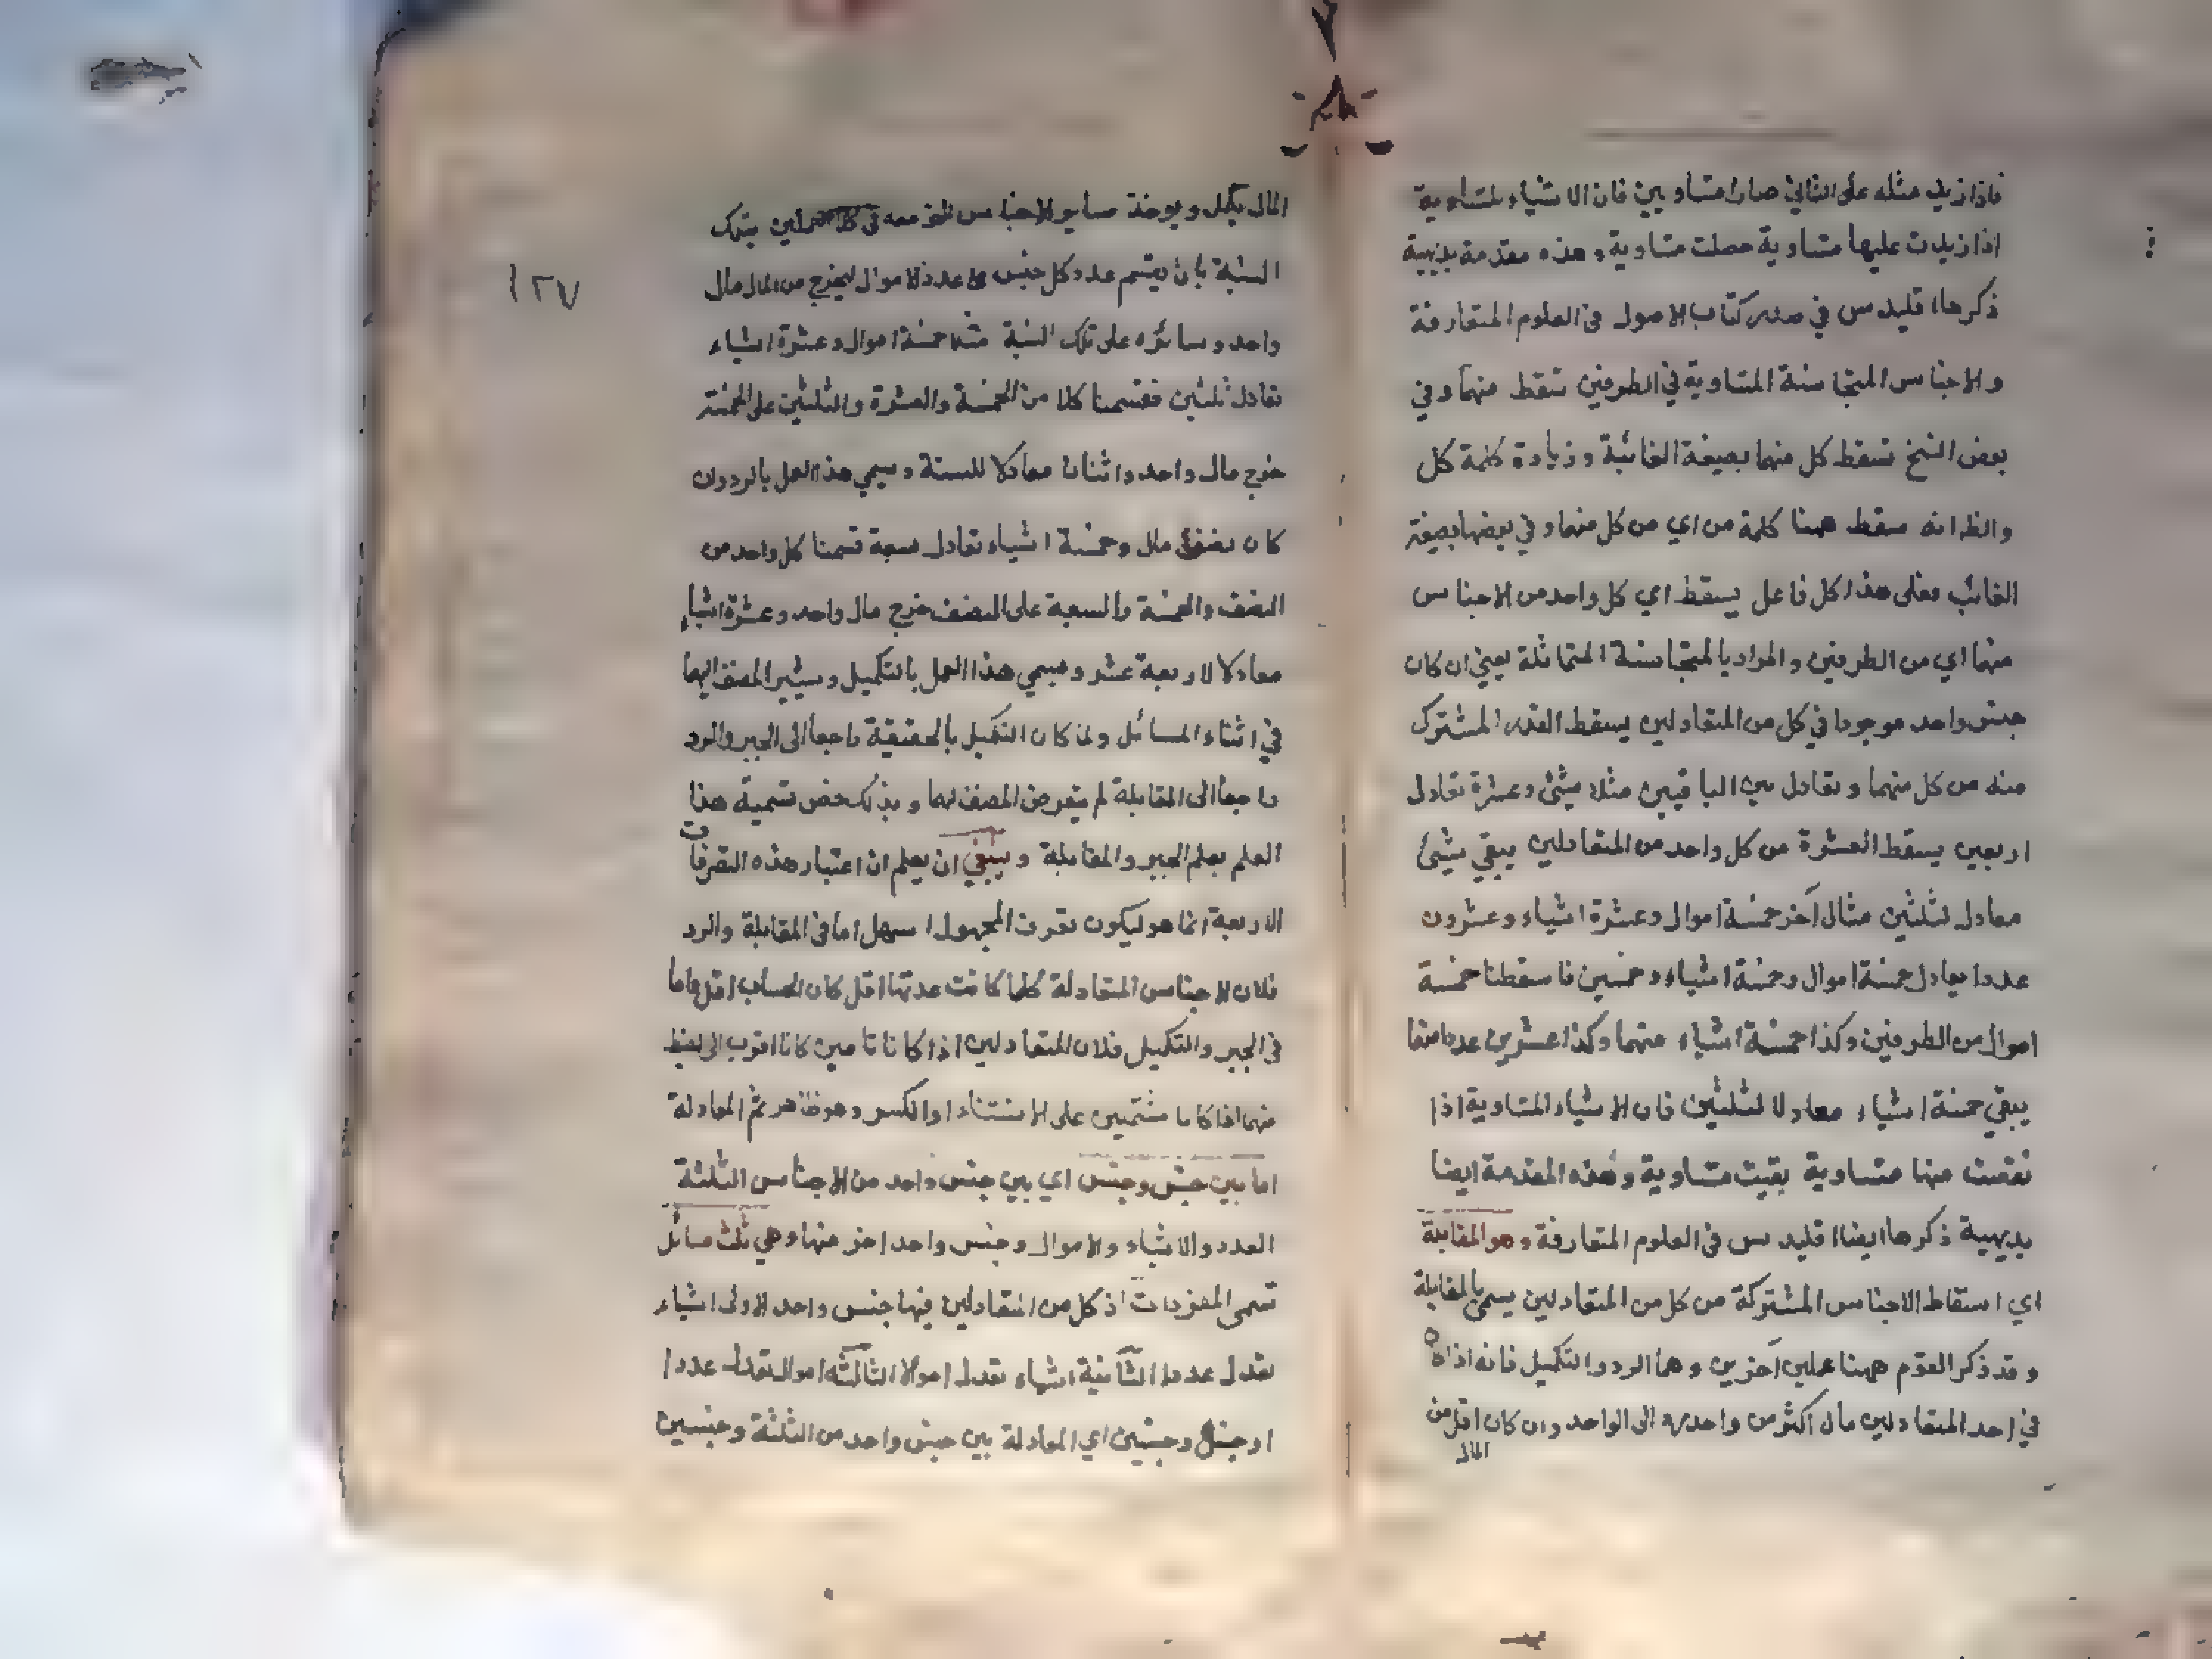 فاذا زيد مثله على الثاني صارا متساويين فان الاشياء المتساوية
اذا زيدت عليها متساوية حصلت متساوية وهذه مقدمة بديهية
ذكرها اقليدس في صدر كتاب الاصول في العلوم المتعارفة
والاجناس المتجانسة المتساوية في الطرفين تسقط منهما وفي
بعض النسخ تسقط كل منهما بصيغة الغائبة وزيادة كلمة كل
والظ انه سقط ههنا كلمة من اي من كل منهما وفي بعضها بصيغة
الغائب فعلى هذا كل فاعل يسقط اي كل واحد من الاجناس
منهما اي من الطرفين والمراد بالمتجانسة المتماثلة يعني ان كان
جنس واحد موجودا في كل من المتعادلين يسقط القدر المشترك
منه من كل منهما وتعادل بين الباقيين مثلا شئ وعشرة تعادل
اربعين يسقط العشرة من كل واحد من المتعادلين يبقي شئ
معادل لثلثين مثال آخر خمسة اموال وعشرة اشياء وعشرون
عددا يعادل خمسة اموال وخمسة اشياء وخمسين فاسقطنا خمسة
اموال من الطرفين وكذا خمسة اشياء منهما وكذا عشرين عددا منهما
يبقي خمسة اشياء معادلا لثلثين فان الاشياء المتساوية اذا
نقصت منها متساوية بقيت متساوية وهذه المقدمة ايضا
بديهية ذكرها ايضا اقليدس في العلوم المتعارفة وهو المقابلة
اي اسقاط الاجناس المشتركة من كل من المتعادلين يسمى بالمقابلة
وقد ذكر القوم ههنا عملين آخرين وهما الرد والتكميل فانه اذا كان
في احد المتعادلين مال اكثر من واحد يرد الى الواحد وان كان اقل من
المال
المال يكمل ويوخذ ساير الاجناس التي معه في كلا العملين بتلك
النسبة بان يقسم عدد كل جنس على عدد الاموال ليخرج من المال مال
واحد وسائره على تلك النسبة مثلا خمسة اموال وعشرة اشياء
تعادل ثلثين فقسمنا كلا من الخمسة والعشرة والثلثين على الخمسة
خرج مال واحد واثنان معادلا للستة ويسمي هذا العمل بالرد وان
كان نصف مال وخمسة اشياء تعادل سبعة قسمنا كل واحد من
النصف والخمسة والسبعة على النصف خرج مال واحد وعشرة اشياء
معادلا لاربعة عشر ويسمي هذا العمل بالتكميل وسيشير المصنف اليهما
في اثناء المسائل ولما كان التكميل بالحقيقة راجعا الى الجبر والرد
راجعا الى المقابلة لم يتعرض المصنف لهما وبذلك خص تسمية هذا
العلم بعلم الجبر والمقابلة وينبغي ان يعلم ان اعتبار هذه التصرفات
الاربعة انما هو ليكون تعرف المجهول اسهل اما في المقابلة والرد
فلان الاجناس المتعادلة كلما كانت عدتها اقل كان الحساب اقل واما
في الجبر والتكميل فلان المتعادلين اذا كانا تامين كانا اقرب الى
منهما اذا كانا مشتملين على الاستثناء او الكسر وهو ظاهر ثم المعادلة
اما بين جنس وجنس اي بين جنس واحد من الاجناس الثلثة
العدد والاشياء والاموال وجنس واحد اخر منها وهي ثلث مسائل
تسمى المفردات اذ كل من المتعادلين فيها جنس واحد الاولى اشياء
تعدل عددا الثانية اشياء تعدل اموالا الثالثة اموال تعدل عددا
او جنس وجنسين اي المعادلة بين جنس واحد من الثلثة وجنسين
١٢٧